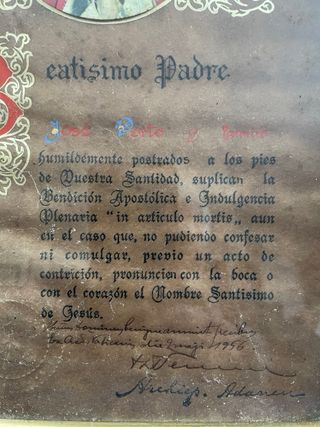 Beatisimo Padre
José y
humildemente postrados a los pies
de Vuestra Santidad, suplican la
Bendición Apostólica e Indulgencia
Plenaria "in articulo mortis„ aun
en el caso que, no pudiendo confesar
ni comulgar, previo un acto de
contrición, pronuncien con la boca o
con el corazón el Nombre Santisimo
de Jesús.
Ex Aed. Vaticanis, die 1956
Archiep.